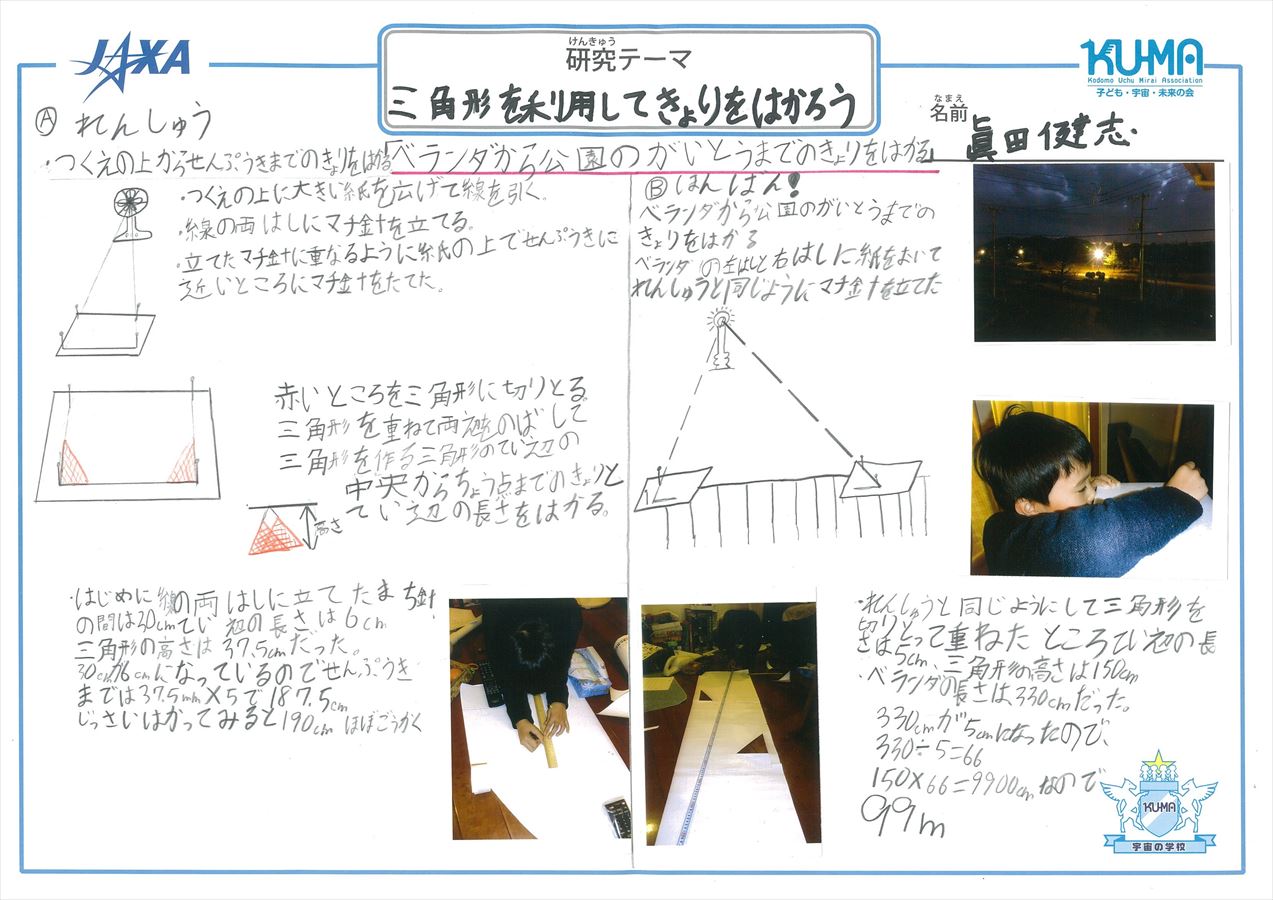 JAXA
けんきゅう
研究テーマ
三角形を利用してきょりをはかろう
KU-MA
Kodomo Uchu Mirai Association
子ども・宇宙・未来の会
なまえ
名前
眞田健志
Ⓐ れんしゅう
・つくえの上からせんぷうきまでのきょりをはかる
「ベランダから公園のがいとうまでのきょりをはかる」
・つくえの上に大きい紙を広げて線を引く。
・線の両はしにマチ針を立てる。
・立てたマチ針に重なるように紙の上でせんぷうきに
近いところにマチ針をたてた。
赤いところを三角形に切りとる
三角形を重ねて両辺をのばして
三角形を作る三角形のてい辺の
中央からちょう点までのきょりと
てい辺の長さをはかる。
高さ
・はじめに線の両はしに立てたまち針
の間は30cmてい辺の長さは6cm
三角形の高さは37.5cmだった。
30cmが6cmになっているのでせんぷうき
までは37.5mm×5で187.5cm
じっさいはかってみると190cmほぼごうかく
Ⓑ ほんばん!
ベランダから公園のがいとうまでの
きょりをはかる
ベランダの左はしと右はしに紙をおいて
れんしゅうと同じようにマチ針を立てた
・れんしゅうと同じようにして三角形を
切りとって重ねたところてい辺の長
さは5cm、三角形の高さは150cm
・ベランダの長さは330cmだった。
330cmが5cmになったので、
330÷5=66
150×66=9900cmなので
99m
KU-MA
宇宙の学校